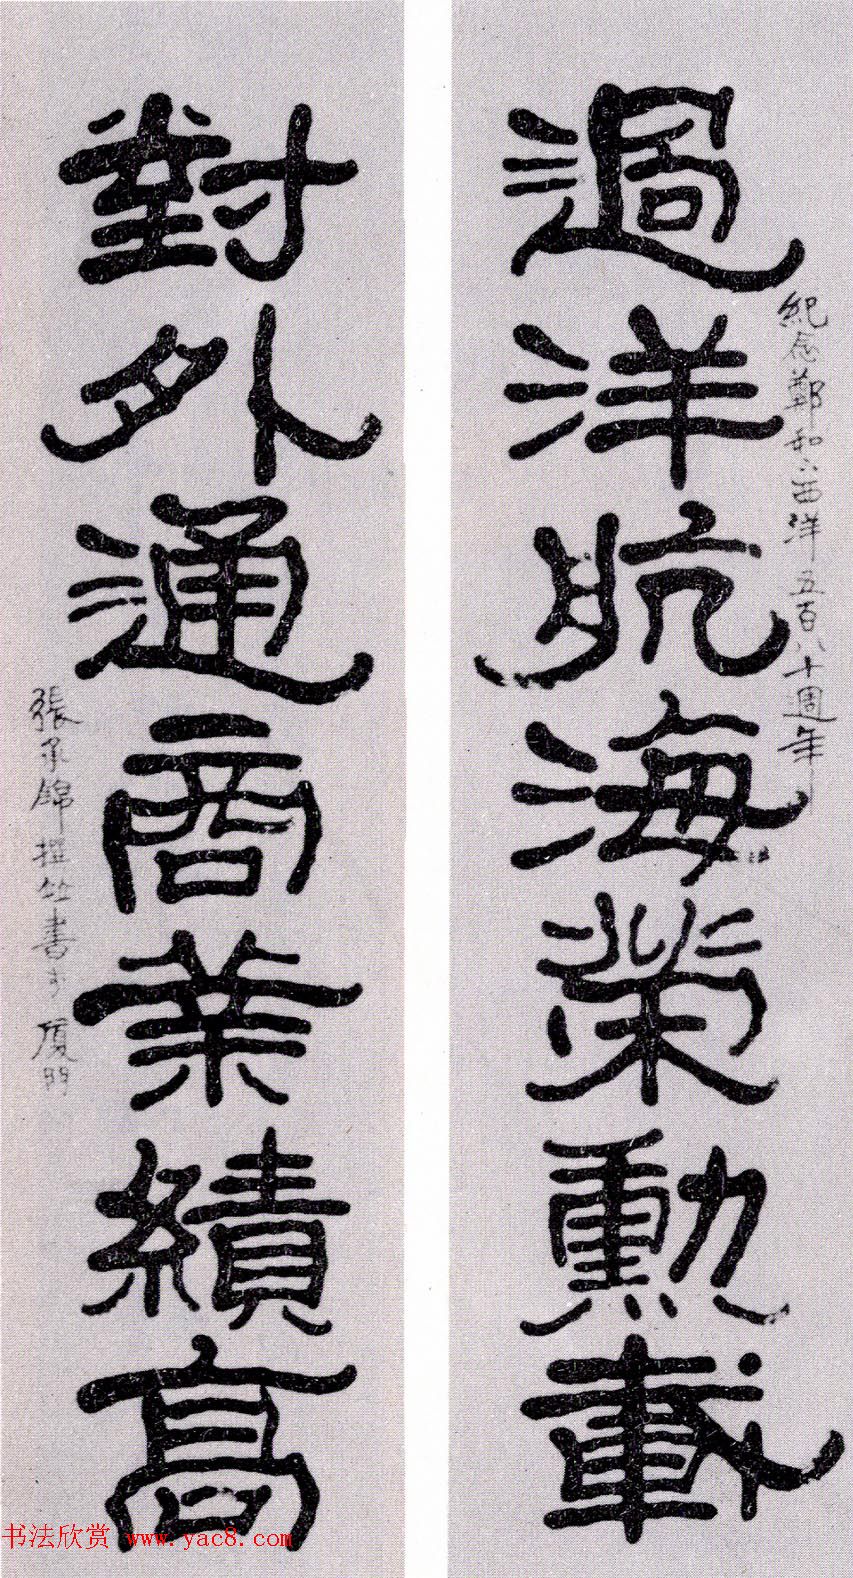 紀念鄭和下西洋五百八十週年
過洋航海榮勳載
對外通商業績高
張承錦撰並書于厦門
书法欣赏 www.yac8.com